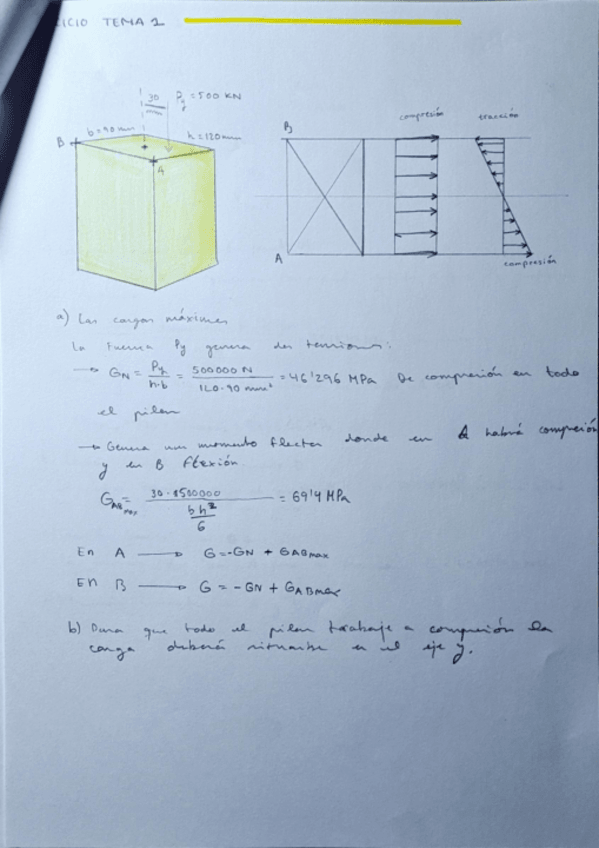 CICIO TEMA 1
30 mm
Py = 500 KN
b = 90 mm
h = 120 mm
B
A
B
A
compresión
tracción
compresión
a) Las cargas máximas
La fuerza Py genera dos tensiones:
→ GN = Py / h·b = 500000 N / 120·90 mm² = 46'296 MPa De compresión en todo
el pilar
→ Genera un momento flector donde en A habrá compresión
y en B flexión
GAB max = 30·500000 / (b h² / 6) = 69'4 MPa
En A → G = -GN + GABmax
En B → G = -GN + GABmax
b) Para que todo el pilar trabaje a compresión la
carga deberá situarse en el eje y.